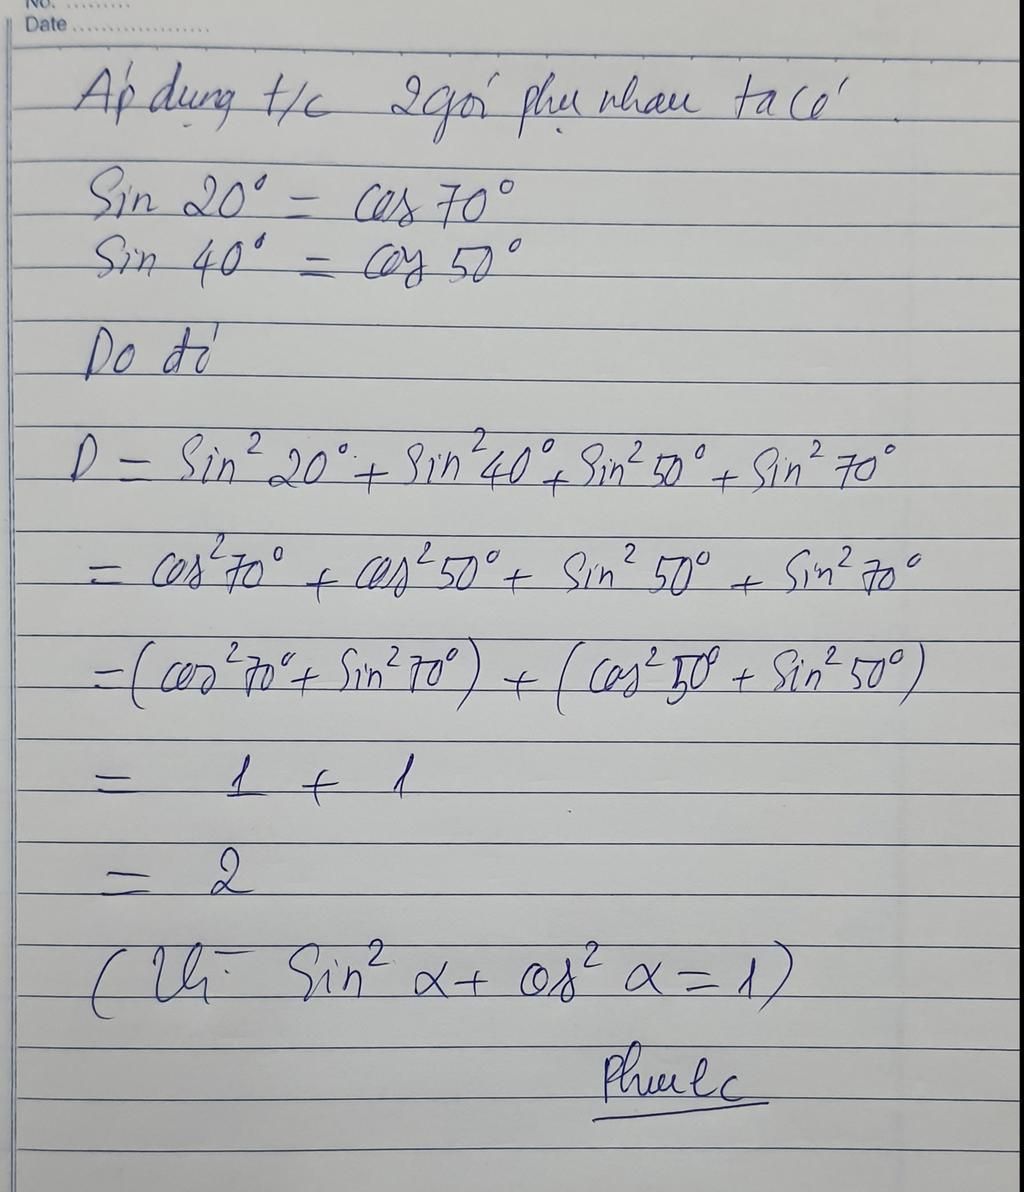 No. .........
Date ..................
Áp dụng t/c 2 gói phụ nhau ta có
Sin 20° = cos 70°
Sin 40° = cos 50°
Do đó
D = Sin² 20° + Sin² 40° + Sin² 50° + Sin² 70°
= cos² 70° + cos² 50° + Sin² 50° + Sin² 70°
= (cos² 70° + Sin² 70°) + (cos² 50° + Sin² 50°)
= 1 + 1
= 2
(Vì Sin² α + cos² α = 1)